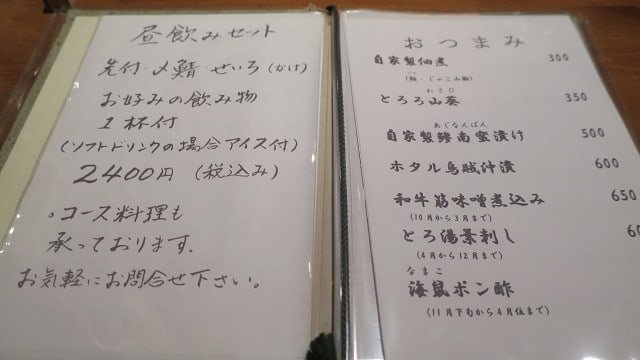 昼飲みセット
先付・〆鯖・せいろ(かけ)
お好みの飲み物
1杯付
(ソフトドリンクの場合アイス付)
2400円 (税込み)
・コース料理も
承っております。
お気軽にお問合せ下さい。
おつまみ
自家製佃煮 300
わさび
とろろ山葵 350
あじなんばん
自家製鯵南蛮漬け 500
ホタル烏賊沖漬 600
和牛筋味噌煮込み 650
(10月から3月まで)
とろ湯葉刺し
(4月から12月まで)
なまこ
海鼠ポン酢
(11月下旬から4月位まで)